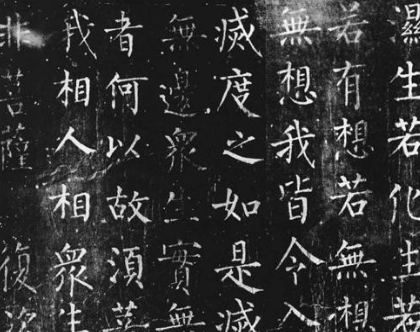 濕生若化生若
若有想若無想
無想我皆令入
滅度之如是滅
無邊衆生實無
者何以故須菩
我相人相衆生
非菩薩 復次